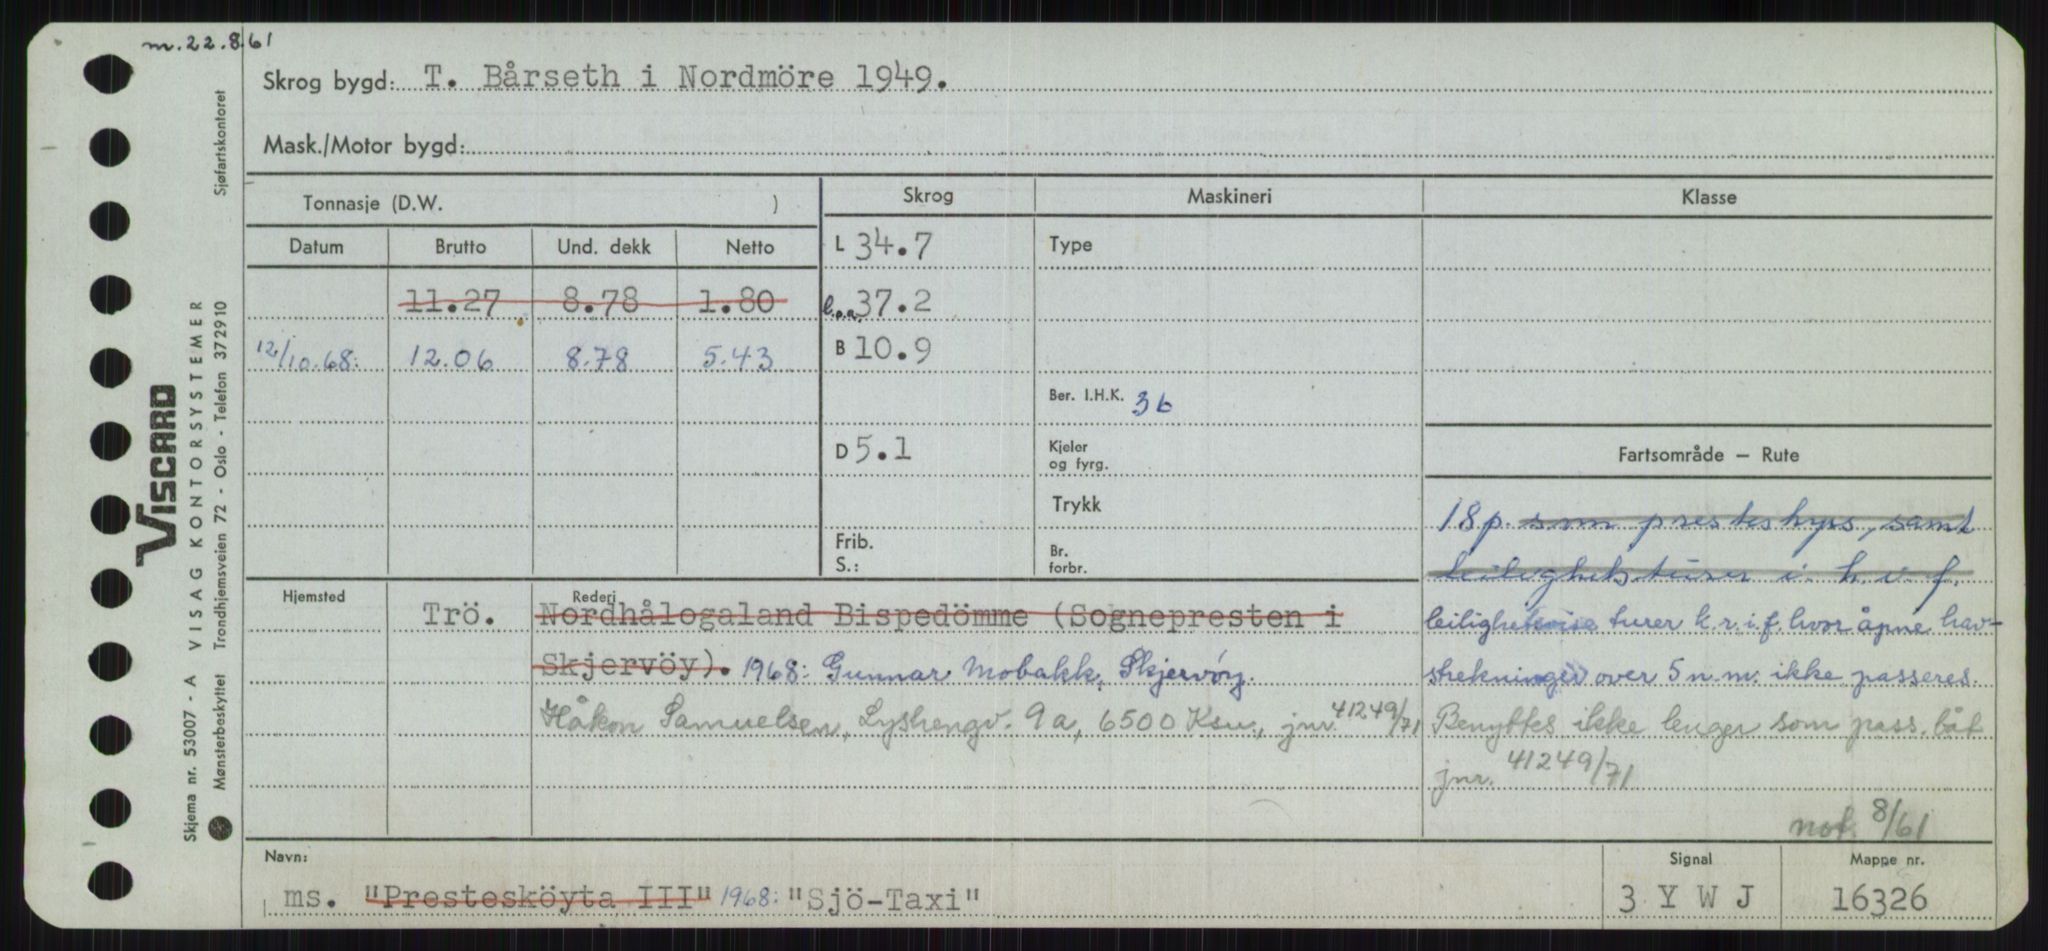 m.22.8.61
Skrog bygd: T. Bårseth i Nordmöre 1949.
Mask./Motor bygd:
Tonnasje (D.W. )
Skrog
Maskineri
Klasse
Datum Brutto Und. dekk Netto
L 34.7
Type
11.27 8.78 1.80
l.o.a. 37.2
12/10.68: 12.06 8.78 5.43
B 10.9
Ber. I.H.K. 36
D 5.1
Kjeler
og fyrg.
Fartsområde — Rute
Trykk
18p. som presteskyss, samt
Frib.
S.:
Br.
forbr.
leilighetsturer i h.v.f.
Hjemsted
Trö.
Rederi
Nordhålogaland Bispedömme (Sognepresten i
leilighetsvise turer k.r.i.f. hvor åpne hav-
Skjervöy). 1968: Gunnar Mobakk, Skjervöy.
strekninger over 5 n.m. ikke passeres.
Håkon Samuelsen, Lyshengv. 9a, 6500 Ksu., jnr. 41249/71
Benyttes ikke lenger som pass. båt
jnr. 41249/71
not. 8/61
Navn:
ms. "Prestesköyta III" 1968: "Sjö-Taxi"
Signal
3 Y W J
Mappe nr.
16326
VISCARD
Skjema nr. 53007 - A VISAG KONTORSYSTEMER
Mønsterbeskyttet Trondhjemsveien 72 - Oslo - Telefon 372910 Sjøfartskontoret